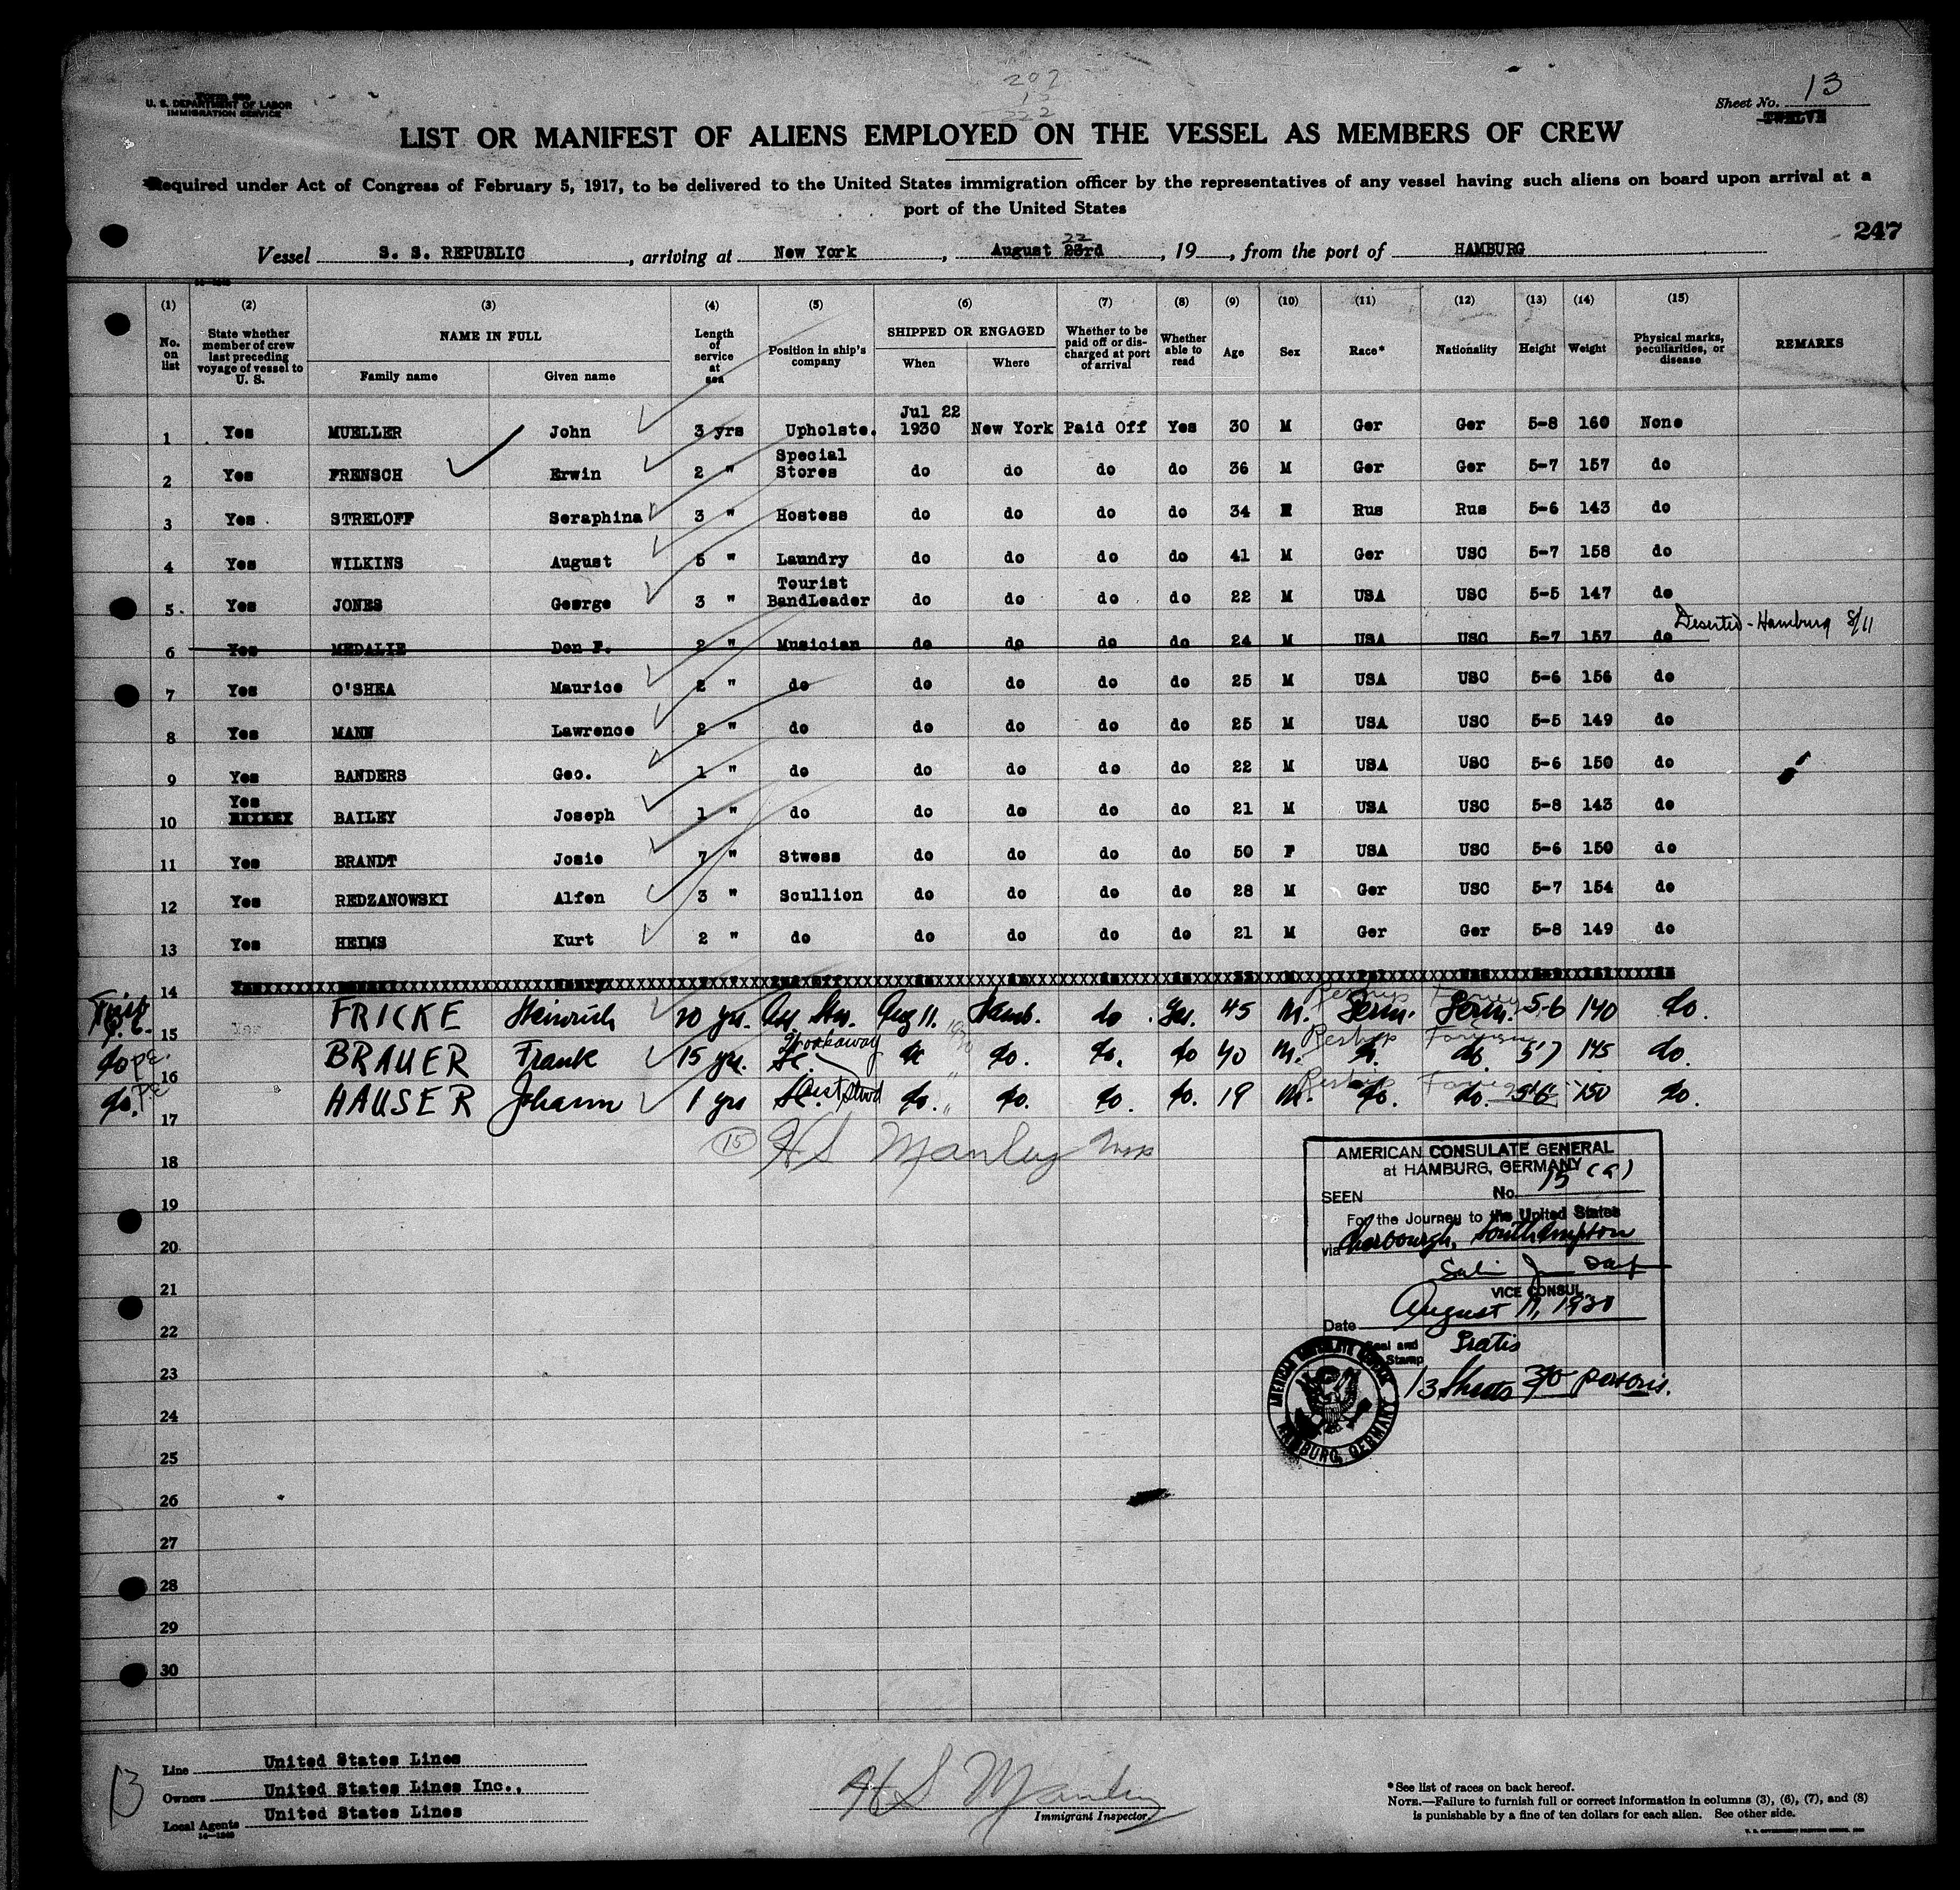 Form 689
U. S. DEPARTMENT OF LABOR
IMMIGRATION SERVICE
207
Sheet No. 13
TWELVE
LIST OR MANIFEST OF ALIENS EMPLOYED ON THE VESSEL AS MEMBERS OF CREW
Required under Act of Congress of February 5, 1917, to be delivered to the United States immigration officer by the representatives of any vessel having such aliens on board upon arrival at a
port of the United States
247
Vessel S. S. REPUBLIC, arriving at New York, August 23rd 22, 19, from the port of HAMBURG
(1) (2) (3) (4) (5) (6) (7) (8) (9) (10) (11) (12) (13) (14) (15)
No. on list State whether member of crew last preceding voyage of vessel to U. S. NAME IN FULL Family name Given name Length of service at sea Position in ship's company SHIPPED OR ENGAGED When Where Whether to be paid off or discharged at port of arrival Whether able to read Age Sex Race* Nationality Height Weight Physical marks, peculiarities, or disease REMARKS
1 Yes MUELLER John 3 yrs Upholste. Jul 22 1930 New York Paid Off Yes 30 M Ger Ger 5-8 160 None
2 Yes FRENSCH Erwin 2 " Special Stores do do do do 36 M Ger Ger 5-7 157 do
3 Yes STRELOFF Seraphina 3 " Hostess do do do do 34 F Rus Rus 5-6 143 do
4 Yes WILKINS August 5 " Laundry do do do do 41 M Ger USC 5-7 158 do
5 Yes JONES George 3 " Tourist BandLeader do do do do 22 M USA USC 5-5 147 do
6 Yes MEDALIE Don F. 2 " Musician do do do do 24 M USA USC 5-7 157 do Deserted - Hamburg 8/11
7 Yes O'SHEA Maurice 2 " do do do do do 25 M USA USC 5-6 156 do
8 Yes MANN Lawrence 2 " do do do do do 25 M USA USC 5-5 149 do
9 Yes BANDERS Geo. 1 " do do do do do 22 M USA USC 5-6 150 do
10 Yes BAILEY Joseph 1 " do do do do do 21 M USA USC 5-8 143 do
11 Yes BRANDT Josie 7 " Stwess do do do do 50 F USA USC 5-6 150 do
12 Yes REDZANOWSKI Alfon 3 " Scullion do do do do 28 M Ger USC 5-7 154 do
13 Yes HEIMS Kurt 2 " do do do do do 21 M Ger Ger 5-8 149 do
14
15 FRICKE Heinrich 20 yrs. Aug 11. Hamb. do Yes. 45 M. Germ. Germ. 5-6 140 do.
16 do BRAUER Frank 15 yrs. do. do. do 40 M. do. do. 5'7 145 do.
17 do. HAUSER Johann 1 yrs do. do. do. do. 19 M. do. do. 5'6 150 do.
15 HS Manley Insp
18
19
20
21
22
23
24
25
26
27
28
29
30
AMERICAN CONSULATE GENERAL
at HAMBURG, GERMANY
SEEN No. 15 (a)
For the Journey to the United States
via Cherbourgh, Southampton
VICE CONSUL
Date August 11, 1930
Seal and Stamp Gratis
13 Sheets 370 persons.
HAMBURG, GERMANY
13
Line United States Lines
Owners United States Lines Inc.,
Local Agents United States Lines
14-1240
HS Manley
Immigrant Inspector
*See list of races on back hereof.
NOTE.—Failure to furnish full or correct information in columns (3), (6), (7), and (8)
is punishable by a fine of ten dollars for each alien. See other side.